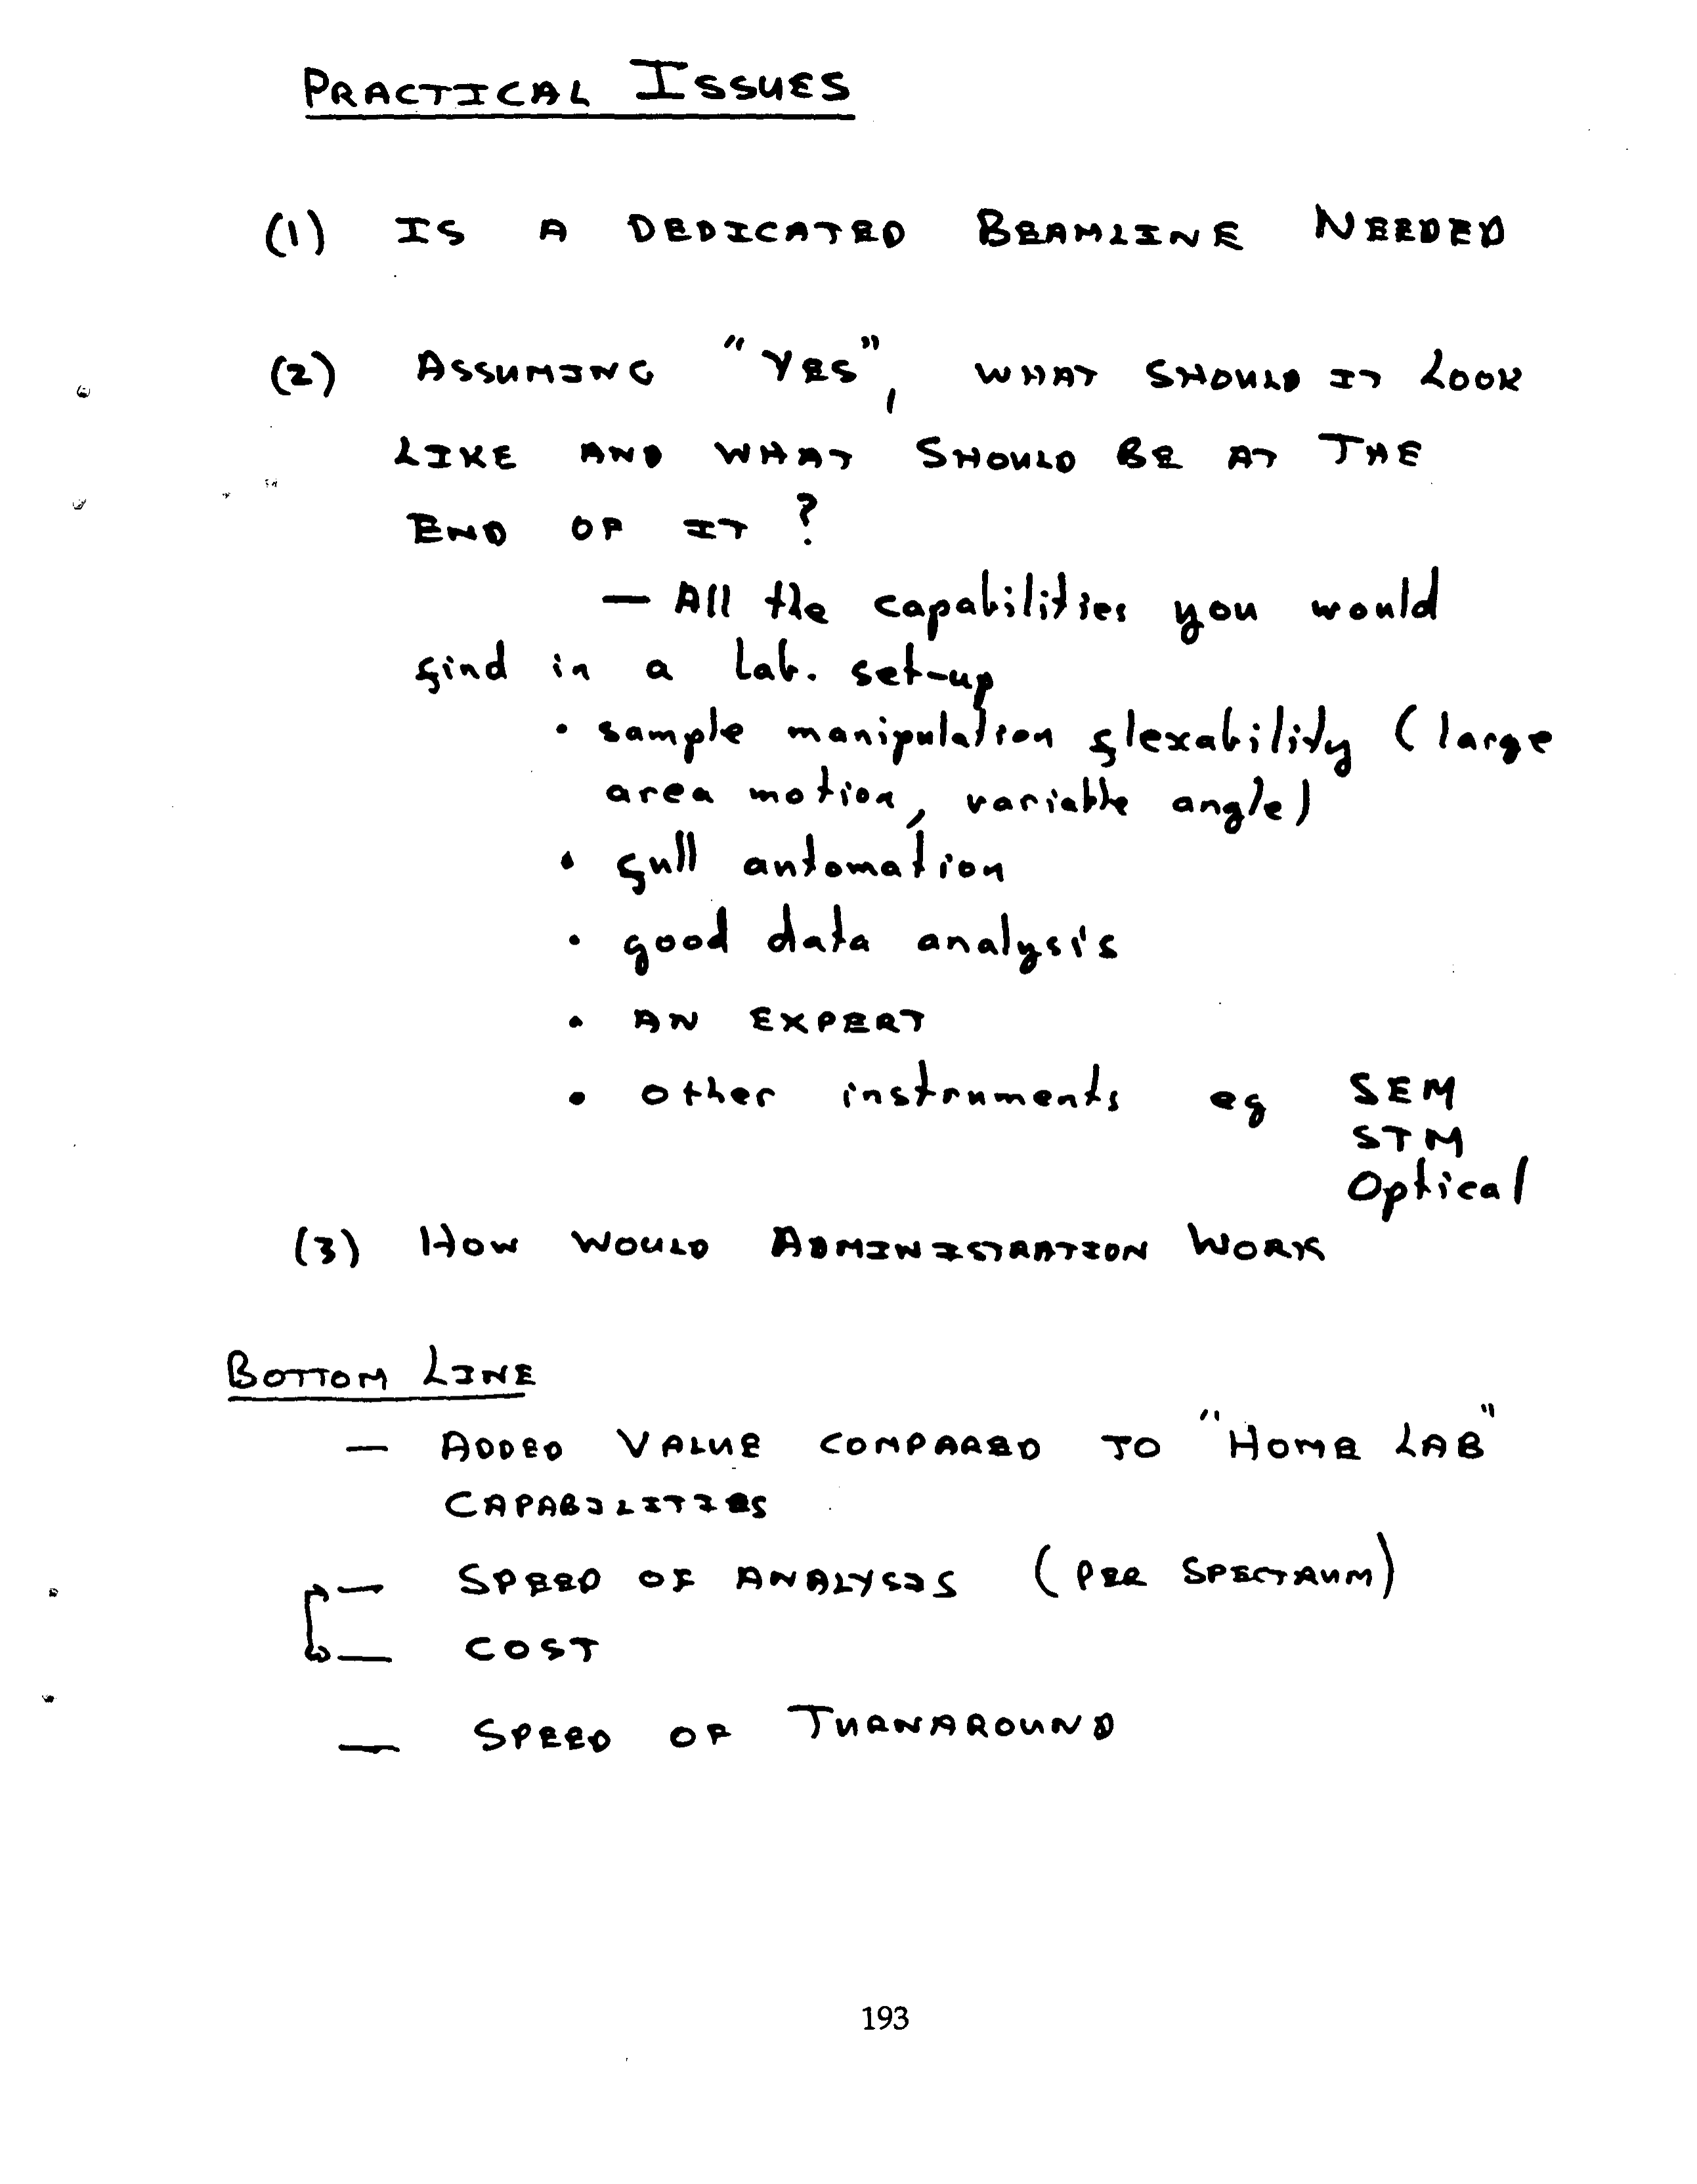 PRACTICAL ISSUES
(1) IS A DEDICATED BEAMLINE NEEDED
(2) ASSUMING "YES", WHAT SHOULD IT LOOK
LIKE AND WHAT SHOULD BE AT THE
END OF IT ?
— All the capabilities you would
find in a lab. set-up
• sample manipulation flexability (large
area motion, variable angle)
• full automation
• good data analysis
• AN EXPERT
• other instruments eg SEM
STM
Optical
(3) HOW WOULD ADMINISTRATION WORK
BOTTOM LINE
— ADDED VALUE COMPARED TO "HOME LAB"
CAPABILITIES
— SPEED OF ANALYSIS (PER SPECTRUM)
— COST
— SPEED OF TURNAROUND
193